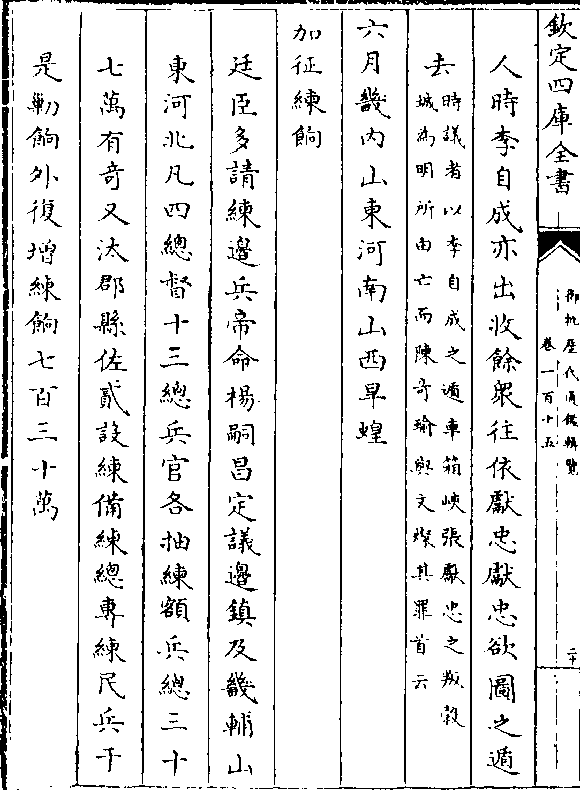 欽定四庫全書
御批歷代通鑑輯覽
卷一百十五
二十
人時李自成亦出收餘衆往依獻忠獻忠欲圖之遁
去時議者以李自成之遁車箱峽張獻忠之叛穀
城為明所由亡而陳奇瑜熊文燦其罪首云
六月畿内山東河南山西旱蝗
加征練餉
廷臣多請練邉兵帝命楊嗣昌定議邉鎮及畿輔山
東河北凡四總督十三總兵官各抽練額兵總三十
七萬有奇又汰郡縣佐貳設練備練總專練民兵于
是勦餉外復增練餉七百三十萬